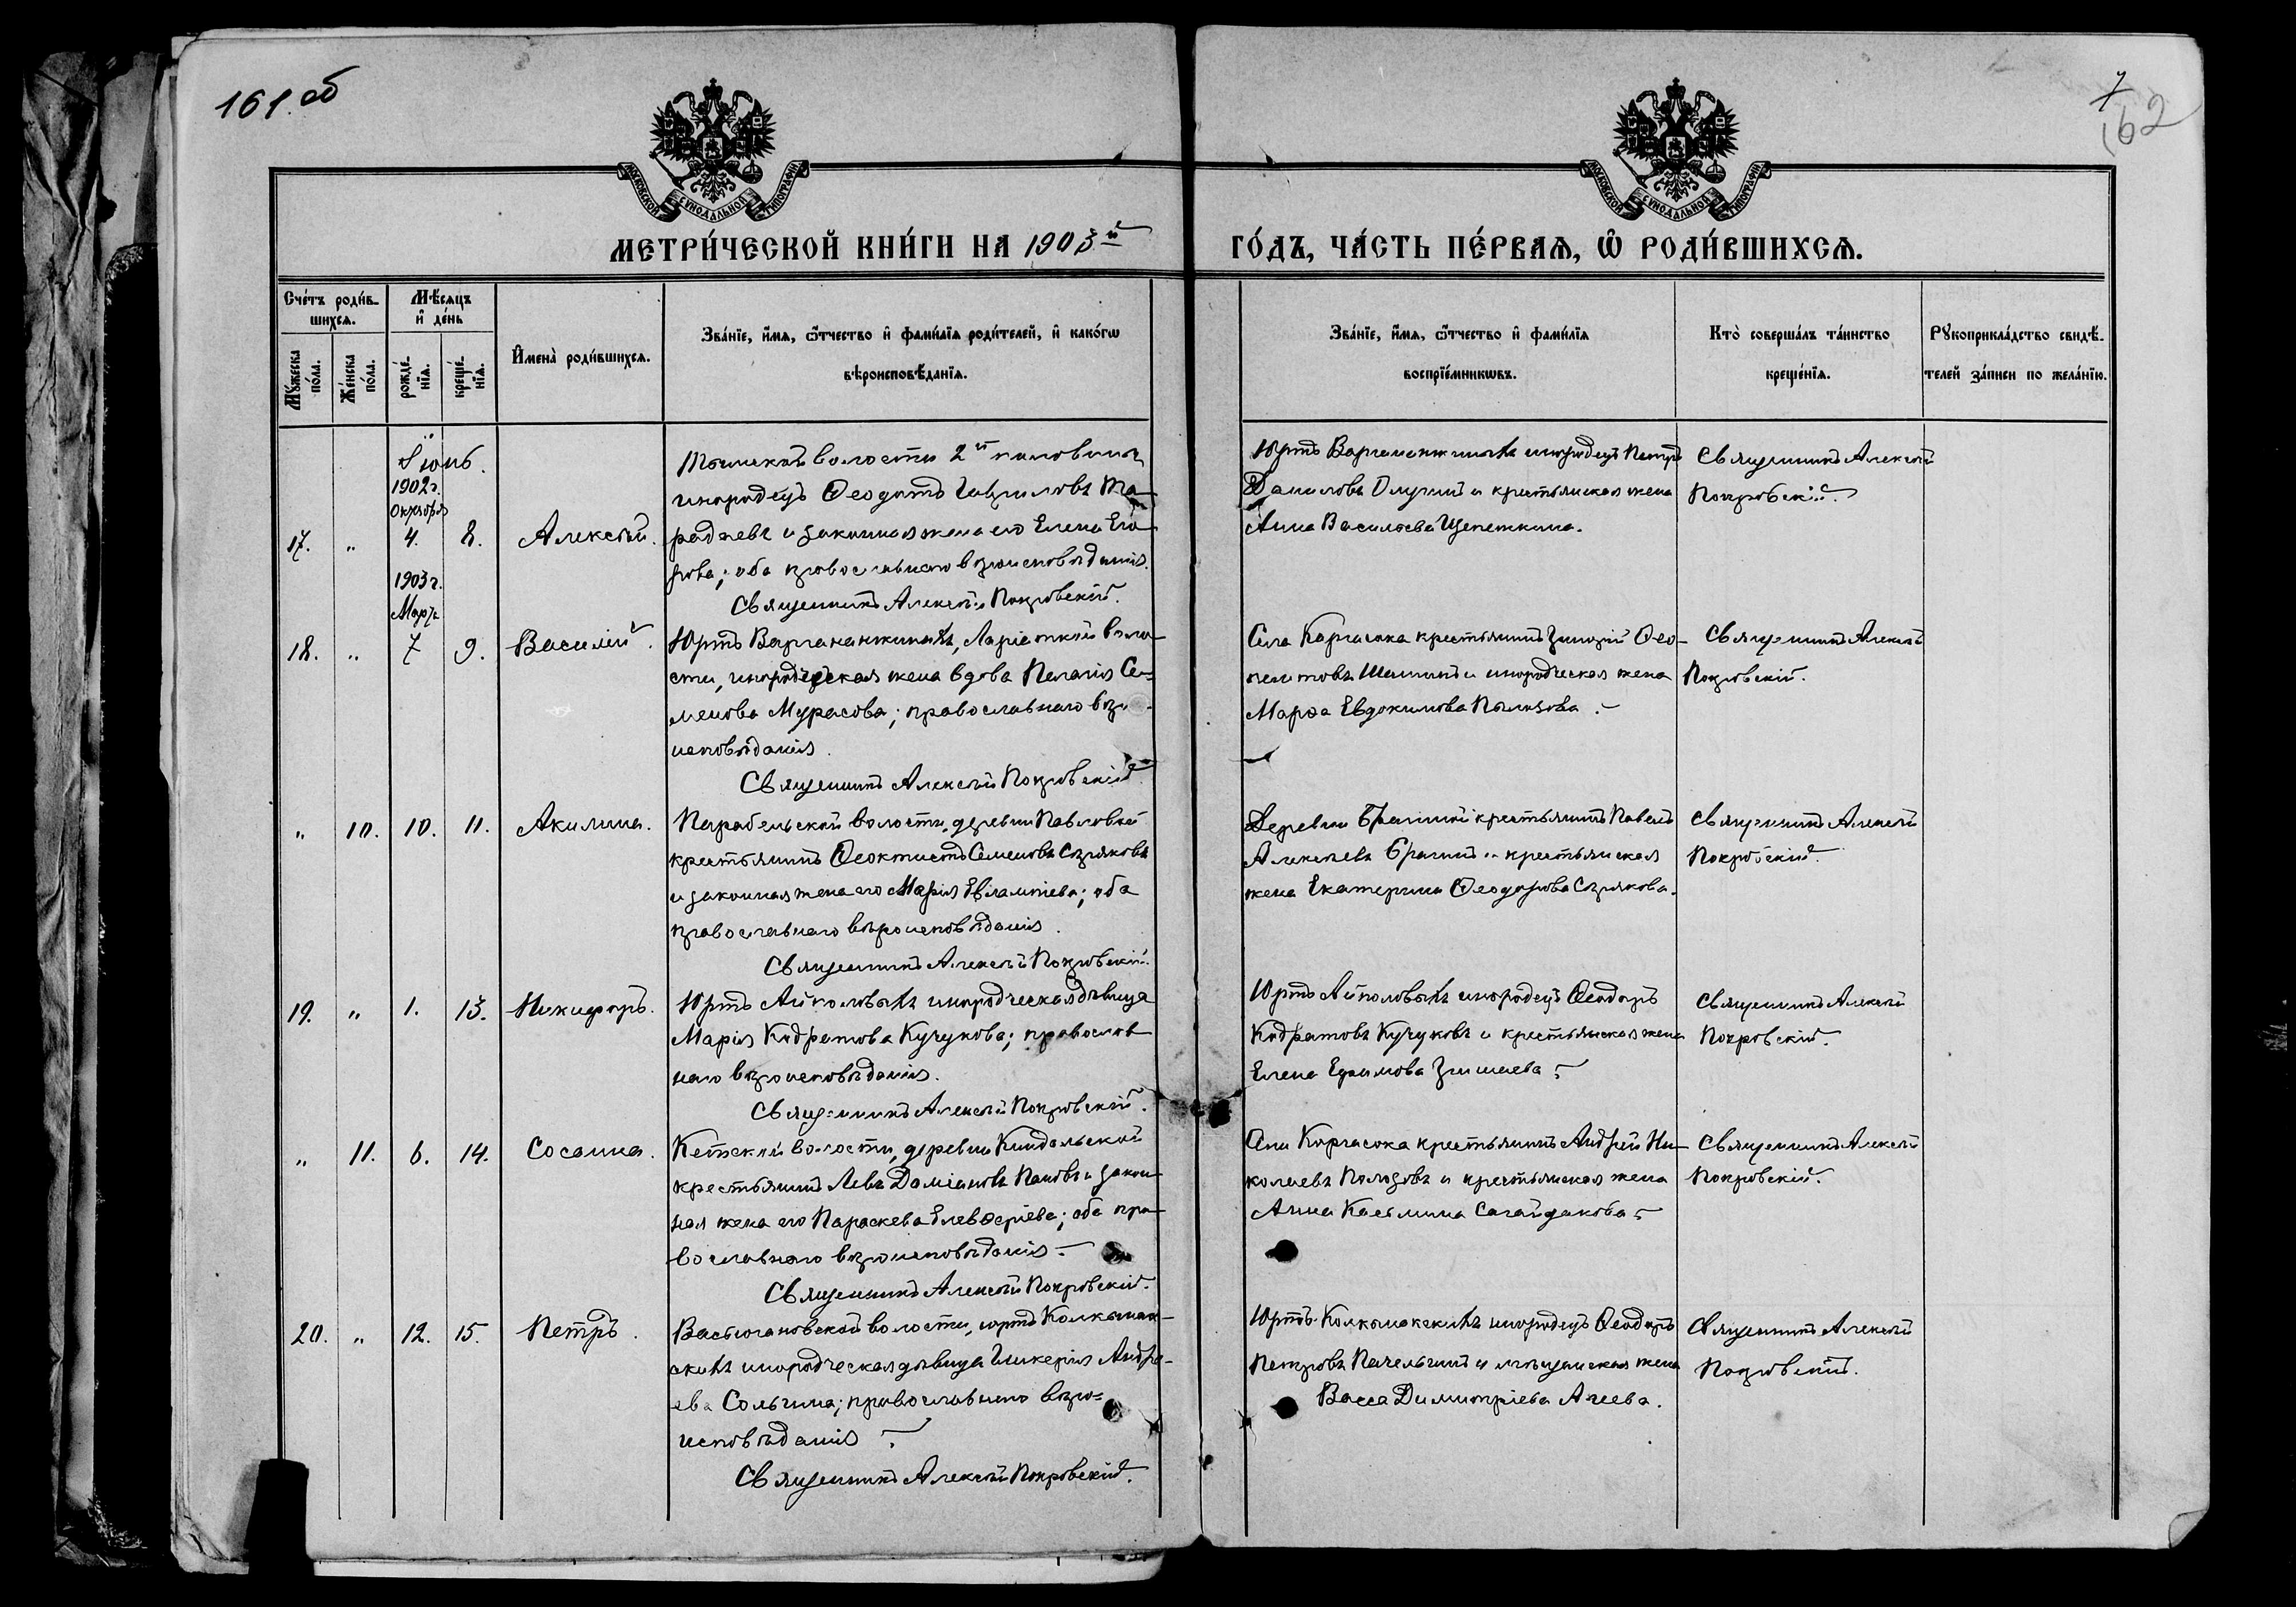 161.об
7
162
МОСКОВСКОЙ СѴНОДАЛЬНОЙ ТИПОГРАФІИ
МОСКОВСКОЙ СѴНОДАЛЬНОЙ ТИПОГРАФІИ
МЕТРИ́ЧЕСКОЙ КНИ́ГИ НА 1903й
ГО́ДЪ, ЧА́СТЬ ПЕ́РВАѦ, Ѡ РОДИ́ВШИХСѦ.
Сче́тъ роди́в-
шихсѧ.
Мѣ́сѧцъ
и҆ де́нь
Мꙋ́жеска
по́ла.
Же́нска
по́ла.
рожде́-
нїѧ.
креще́-
нїѧ.
И҆мена̀ роди́вшихсѧ.
Зва́нїе, и҆́мѧ, ѻ҆́тчество и҆ фами́лїѧ роди́телей, и҆ како́гѡ
вѣроисповѣ́данїѧ.
Зва́нїе, и҆́мѧ, ѻ҆́тчество и҆ фами́лїѧ
воспрїе́мникѡвъ.
Кто̀ соверша́лъ та́инство
креще́нїѧ.
Рꙋкоприкла́дство свидѣ́-
телей за́писи по жела́нїю.
Іюнь.
1902г.
Октября
17. „ 4. 8. Алексѣй.
волости 2й половины
инородецъ Ѳеодотъ Гавриловъ
и законная жена его Елена Его-
рова; оба православнаго вѣроисповѣданія.
Священникъ Алексѣй Покровскій.
Юртъ инородецъ Петръ
Даниловъ и крестьянская жена
Анна Васильева Щепеткина.
Священникъ Алексѣй
Покровскій.
1903г.
Мартъ
18. „ 7 9. Василій.
Юртъ Варгананжиныхъ, Ларіатской воло-
сти, инородческая жена вдова Пелагія Се-
менова Мурасова; православнаго вѣро-
исповѣданія.
Священникъ Алексѣй Покровскій.
Села Каргасока крестьянинъ Ѳео-
и инородческая жена
Марѳа Евдокимова
Священникъ Алексѣй
Покровскій.
„ 10. 10. 11. Акилина.
Парабельской волости, деревни Павловой
крестьянинъ Ѳеоктистъ Семеновъ
и законная жена его Марія Евлампіева; оба
православнаго вѣроисповѣданія.
Священникъ Алексѣй Покровскій.
Деревни Брагиной крестьянинъ Павелъ
Алексѣевъ Брагинъ и крестьянская
жена Екатерина Ѳеодорова
Священникъ Алексѣй
Покровскій.
19. „ 1. 13. Никифоръ.
Юртъ Айполовыхъ инородческая дѣвица
Марія Кодратова Кучукова; православ-
наго вѣроисповѣданія.
Священникъ Алексѣй Покровскій.
Юртъ Айполовыхъ инородецъ Ѳеодоръ
Кодратовъ Кучуковъ и крестьянская жена
Елена Ефимова
Священникъ Алексѣй
Покровскій.
„ 11. 6. 14. Сосанна.
Кетской волости, деревни Киндальской
крестьянинъ Левъ Даміановъ Пановъ и закон-
ная жена его Параскева Елевѳеріева; оба пра-
вославнаго вѣроисповѣданія.
Священникъ Алексѣй Покровскій.
Села Каргасока крестьянинъ Андрей Ни-
колаевъ Полозовъ и крестьянская жена
Анна Касьмина Сагайдакова
Священникъ Алексѣй
Покровскій.
20. „ 12. 15. Петръ.
Васьюгановской волости, юртъ Колкынак-
скихъ инородческая дѣвица Гликерія Андре-
ева Сольгина; православнаго вѣро-
исповѣданія.
Священникъ Алексѣй Покровскій.
Юртъ Колкынакскихъ инородецъ Ѳеодоръ
Петровъ и мѣщанская жена
Васса Димитріева Агеева.
Священникъ Алексѣй
Покровскій.